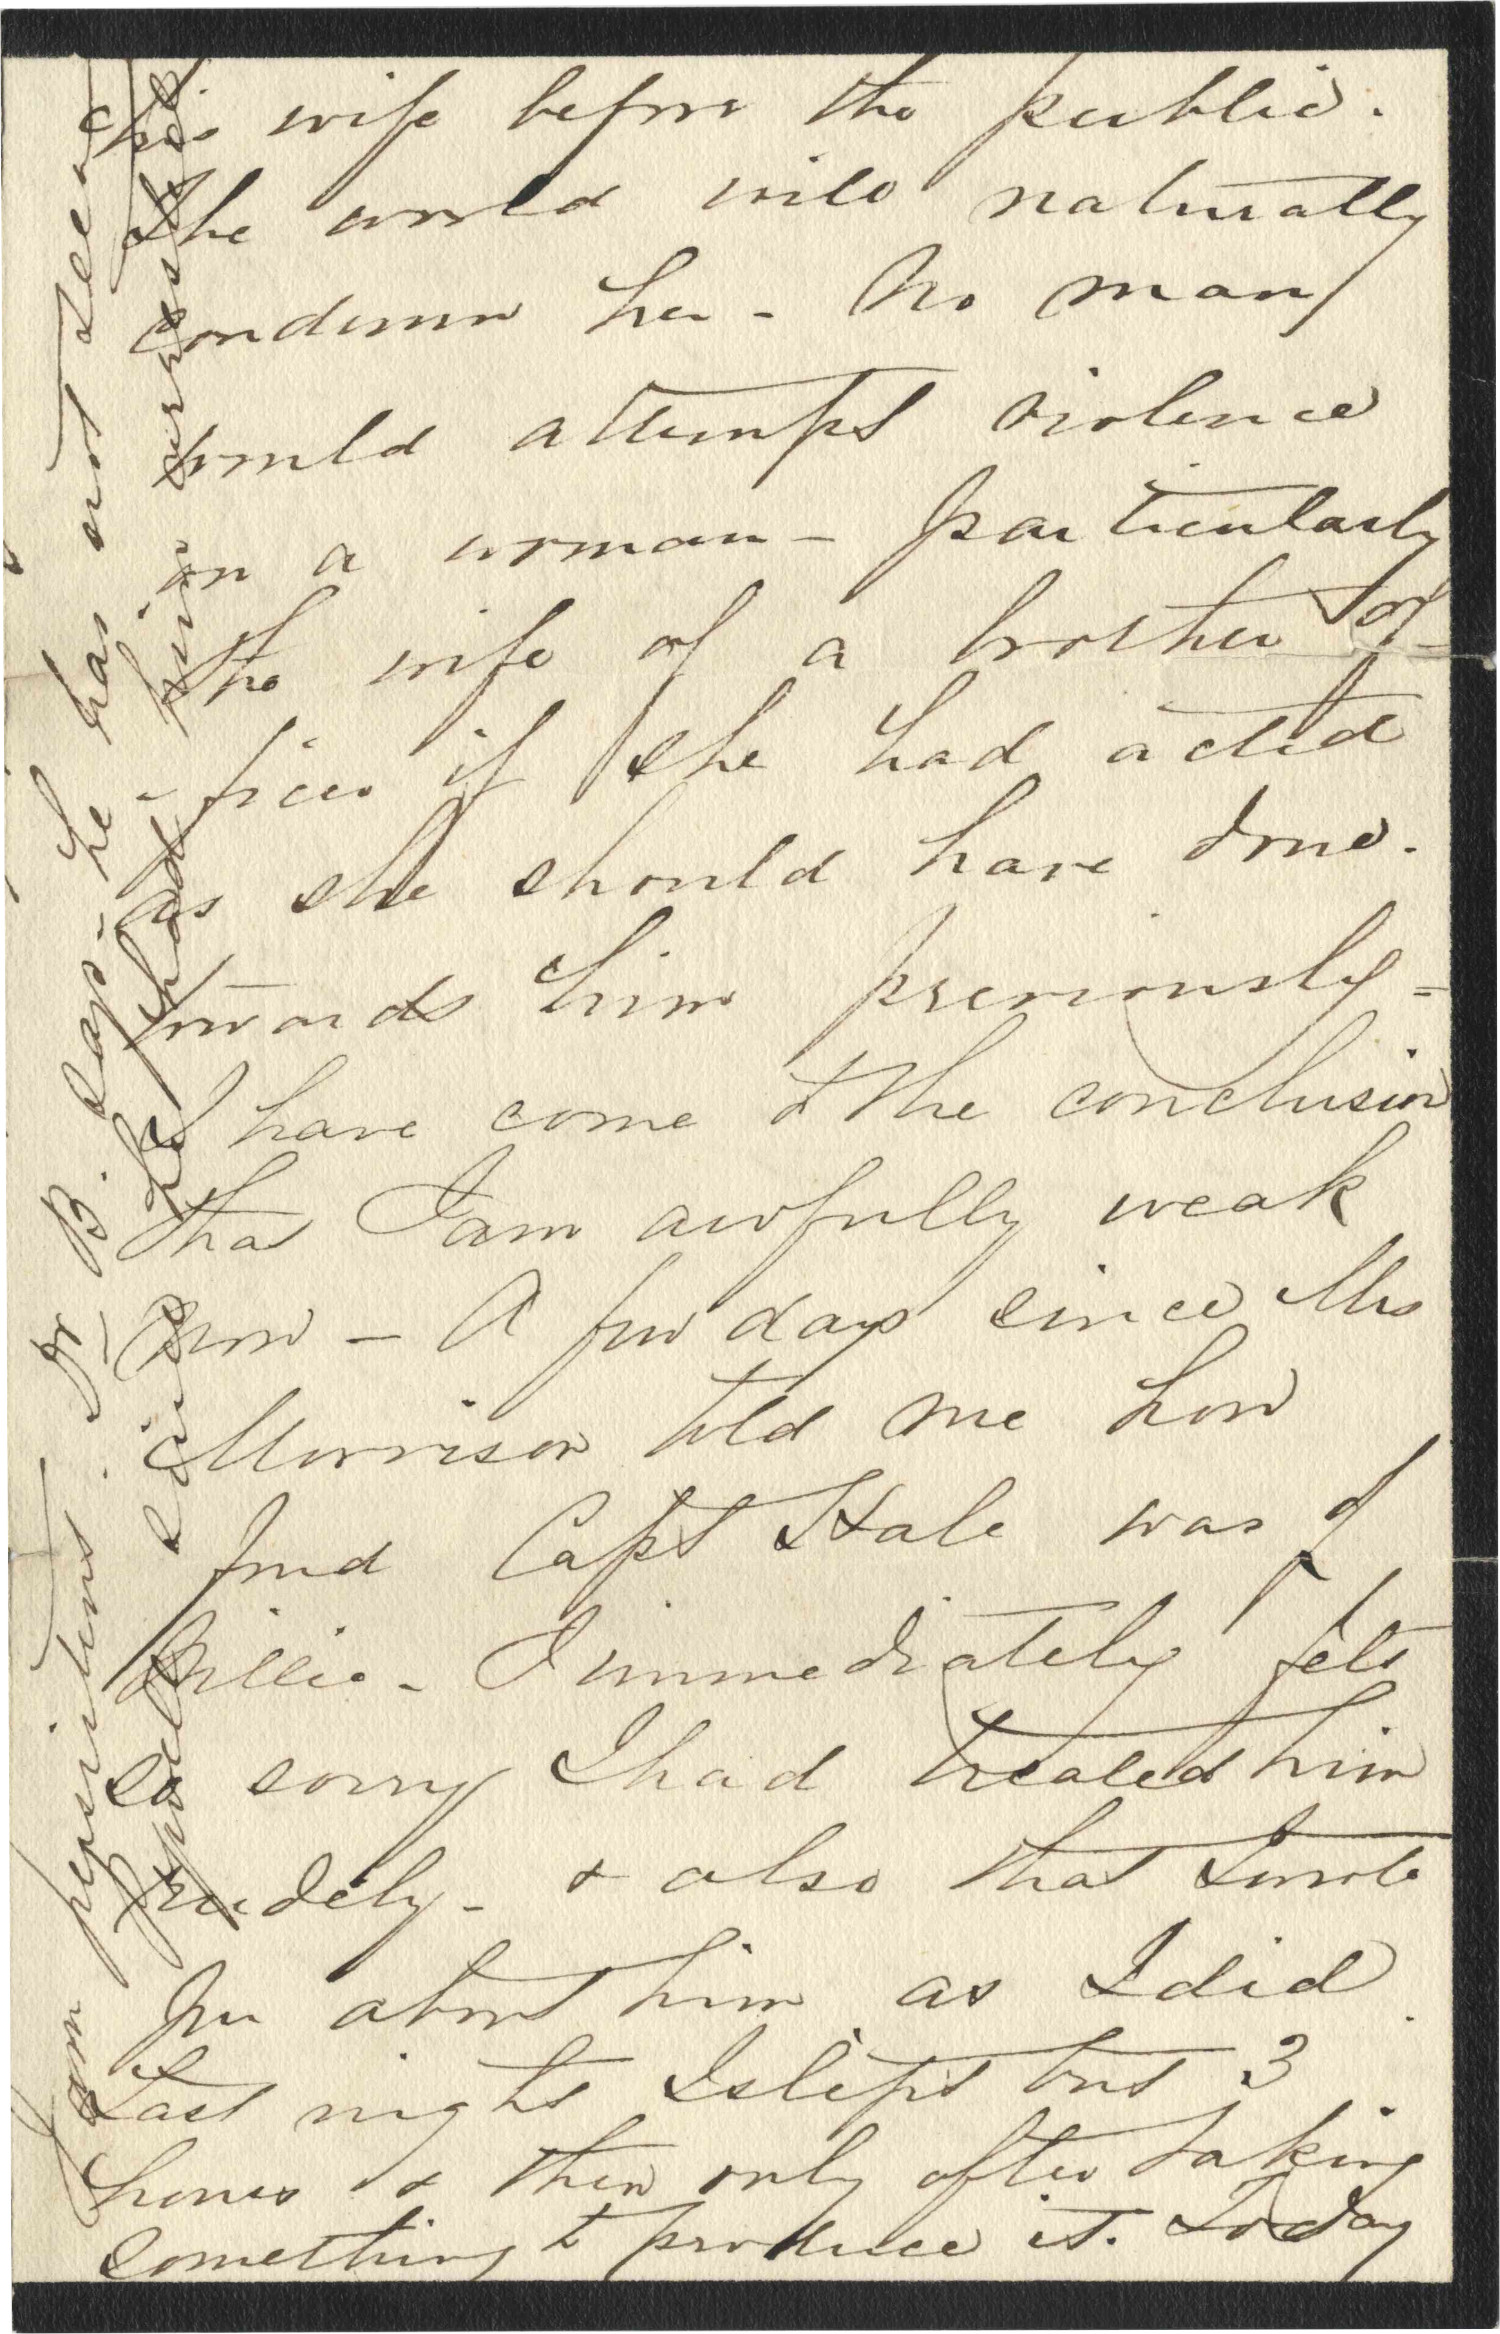 his wife before the public.
The world will naturally
condemn her - No man
would attempt violence
on a woman - particularly
the wife of a brother of-
- ficer if she had acted
as she should have done.
towards him previously -
I have come to the conclusion
that I am awfully weak
now - A few days since Mrs
Morrison told me how
fond Capt Hale was of
Billie - I immediately felt
so sorry I had treated him
rudely - & also that I wrote
you about him as I did.
Last night I slept but 3
hours & then only after taking
something to produce it. To day
I am persistent. Dr B. says - he has not seen
he had